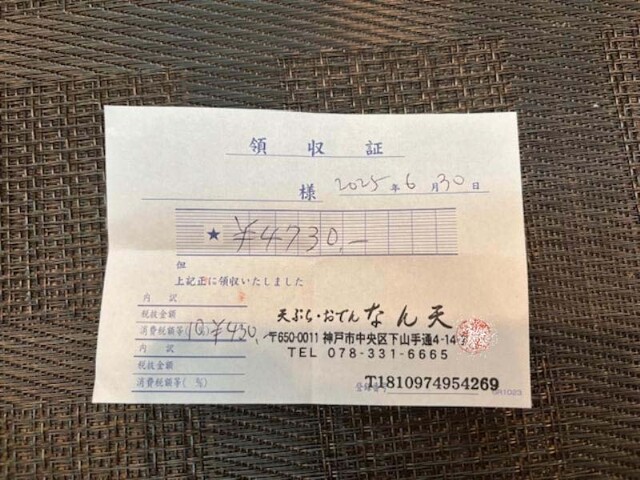 領収証
様 2025年6月30日
★ ¥4730,-
但
上記正に領収いたしました
内訳
税抜金額
消費税額等(10%) ¥430,
内訳
税抜金額
消費税額等( %)
天ぷら・おでん なん天
〒650-0011 神戸市中央区下山手通4-14-
TEL 078-331-6665
登録番号 T1810974954269